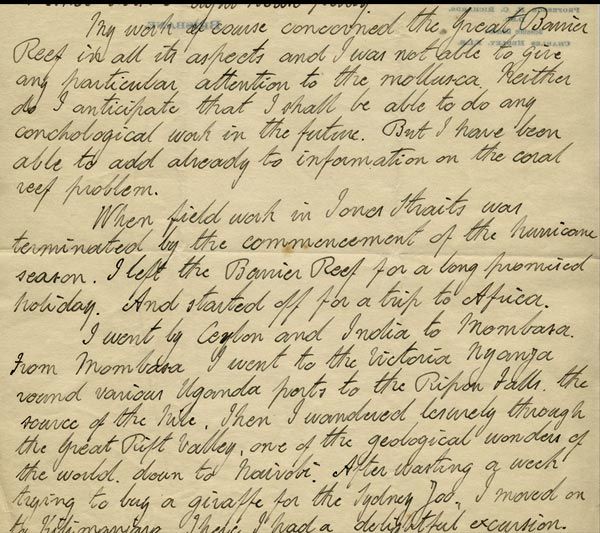 My work of course concerned the Great Barrier
Reef in all its aspects and I was not able to give
any particular attention to the mollusca. Neither
do I anticipate that I shall be able to do any
conchological work in the future. But I have been
able to add already to information on the coral
reef problem.
When field work in Torres Straits was
terminated by the commencement of the hurricane
season. I left the Barrier Reef for a long promised
holiday. And started off for a trip to Africa.
I went by Ceylon and India to Mombasa.
From Mombasa I went to the Victoria Nyanza
round various Uganda ports to the Ripon Falls. the
source of the Nile. Then I wandered lesurely through
the Great Rift Valley, one of the geological wonders of
the world. down to Nairobi. After wasting a week
trying to buy a giraffe for the Sydney Zoo, I moved on
to Kilimanjaro. There I had a delightful excursion.